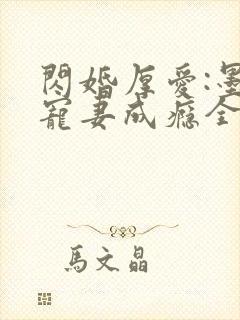 閃婚厚愛:墨
寵妻成癮全
馬文晶